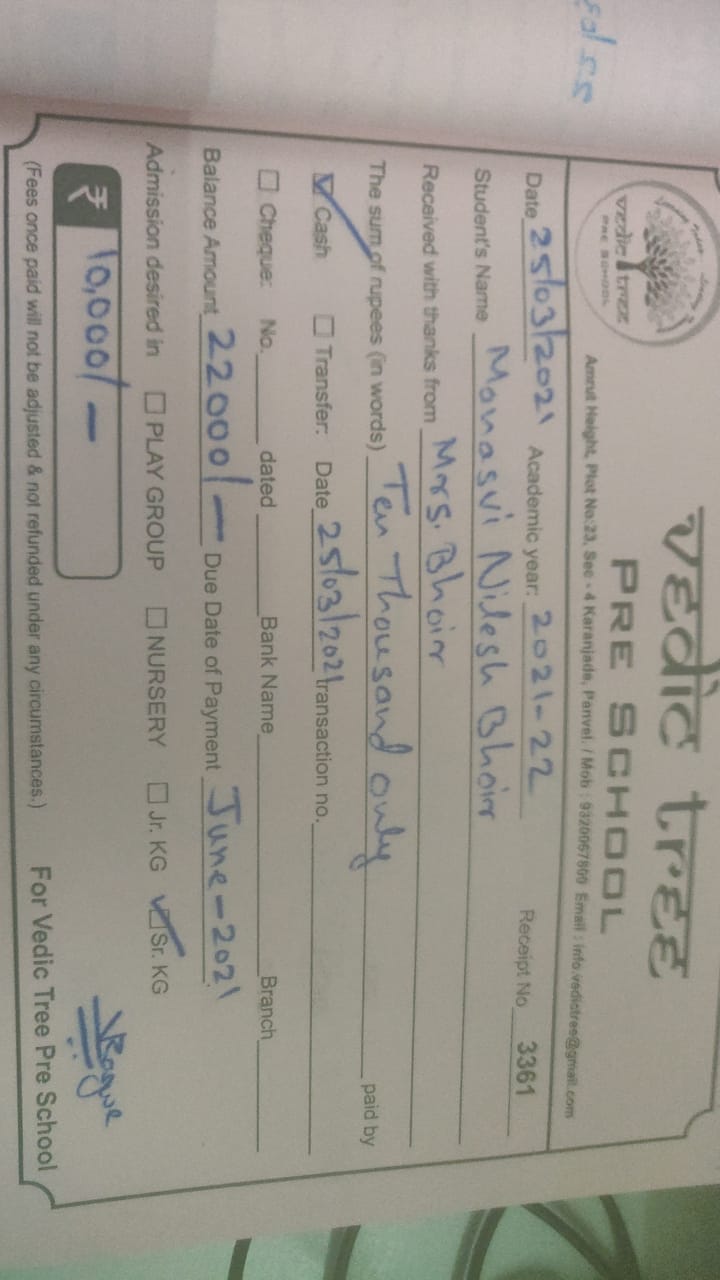 vedic tree
PRE SCHOOL
vedic tree
PRE SCHOOL
Amrut Height, Plot No:23, Sec - 4 Karanjade, Panvel. / Mob : 9320067800 Email : info.vedictree@gmail.com
Date 25/03/2021 Academic year: 2021-22 Receipt No 3361
Student's Name Monasvi Nilesh Bhoir
Received with thanks from Mrs. Bhoir
The sum of rupees (in words) Ten Thousand only paid by
Cash Transfer: Date 25/03/2021 transaction no.
Cheque: No. dated Bank Name Branch
Balance Amount 22000/- Due Date of Payment June-2021
Admission desired in PLAY GROUP NURSERY Jr. KG Sr. KG
₹ 10,000/-
(Fees once paid will not be adjusted & not refunded under any circumstances.) For Vedic Tree Pre School